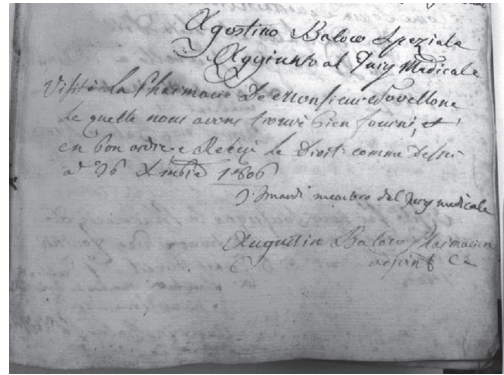 Agostino Baloco Speziale
Aggiunto al Jury Medicale
Visité la Pharmacie De Monsieur
la quelle nous avons trouvé bien fourni, et
en bon ordre e Retiré le Droit comme dessu
a 26 Xmbre 1806
membro del Jury medicale
Augustin Baloco Pharmacien
adjoint